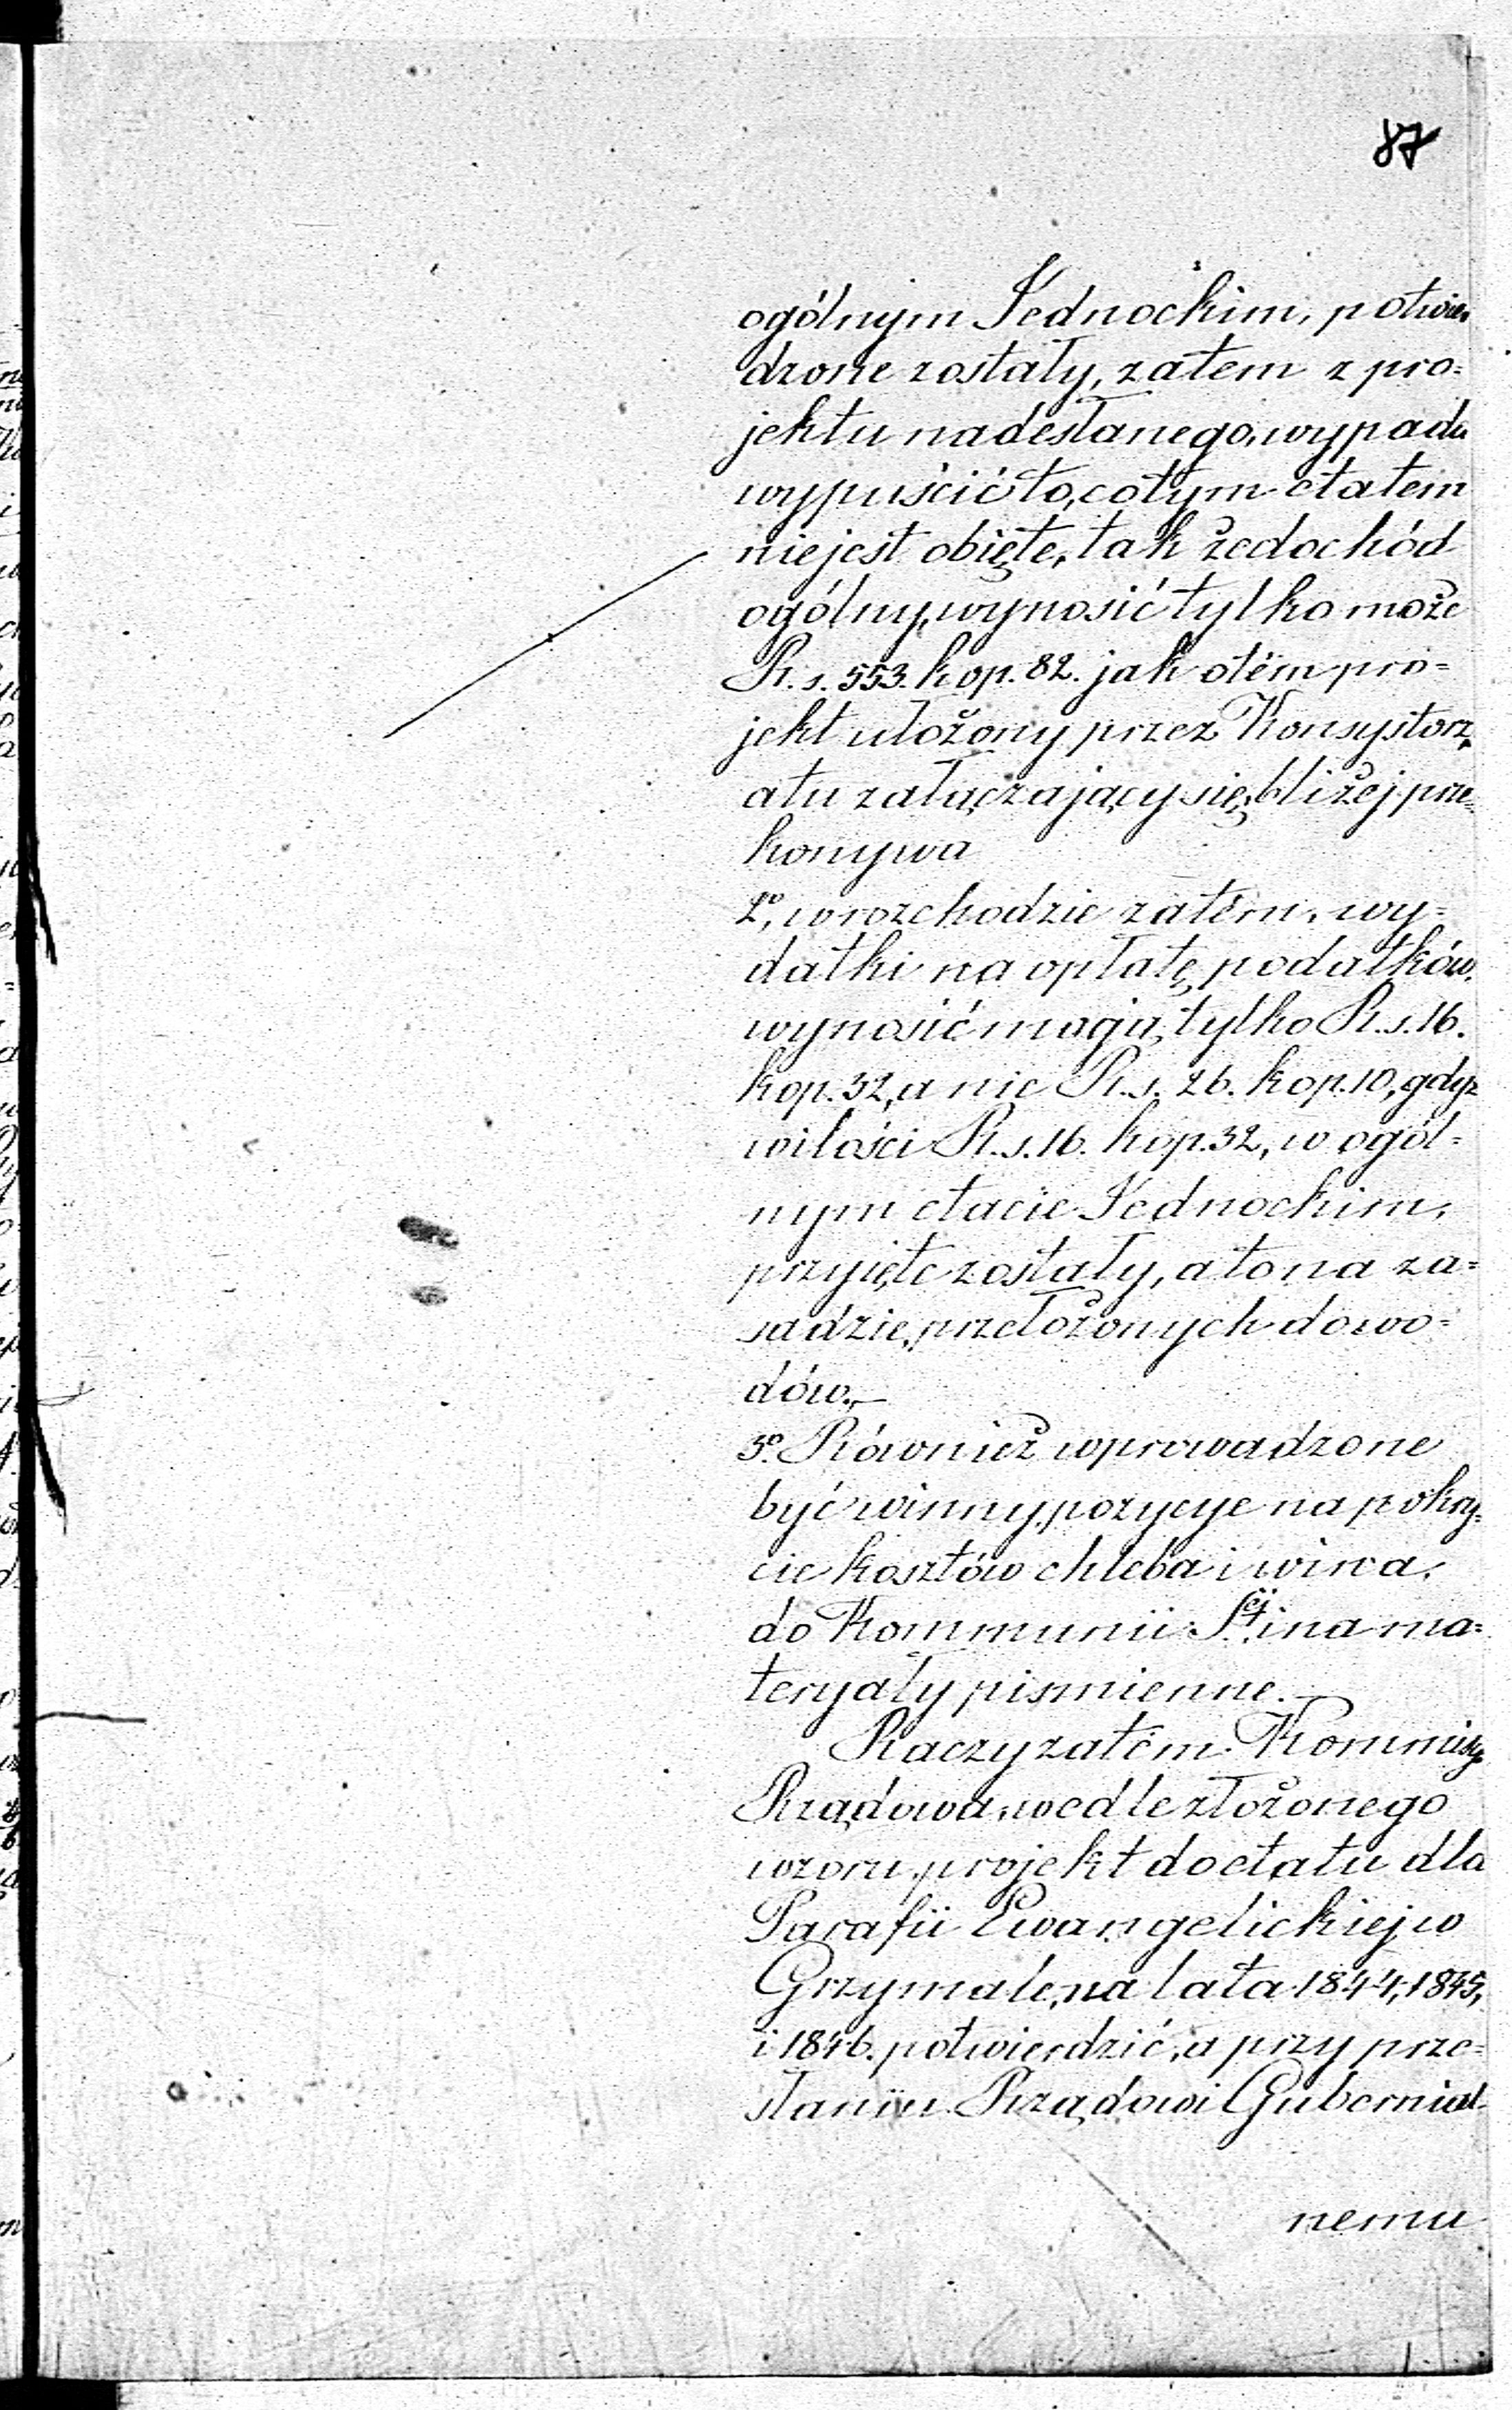 87
ogólnym Jednockim, potwier
dzone zostały, zatem z pro=
jektu nadesłanego, wypada
wypuścić to, co tym etatem
nie jest obięte, tak że dochód
ogólny, wynosić tylko może
R. s. 553. kop. 82. jak o tém pro=
jekt ułożony przez Konsystorz,
a tu załączający się, bliżej prze=
konywa
2º, w rozchodzie zatém, wy=
datki na opłatę podatków,
wynosić mogą, tylko R. s. 16.
kop. 32, a nie R. s. 26. kop. 10, gdyż
w ilości R. s. 16. kop. 32, w ogól=
nym etacie Jednockim,
przyięte zostały, a to na za=
sadzie, przełożonych dowo=
dów.—
3º. Również wprowadzone
być winny, pozycye na pokry=
cie kosztów chleba i wina,
do Kommunii Séj. i na ma=
teryały pismienne.—
Raczy zatém Kommisya
Rządowa, wedle złożonego
wzoru, projekt do etatu dla
Parafii Ewangelickiej w
Grzymale, na lata 1844, 1845,
i 1846. potwierdzić, a przy prze=
słaniu Rządowi Gubernial
nemu